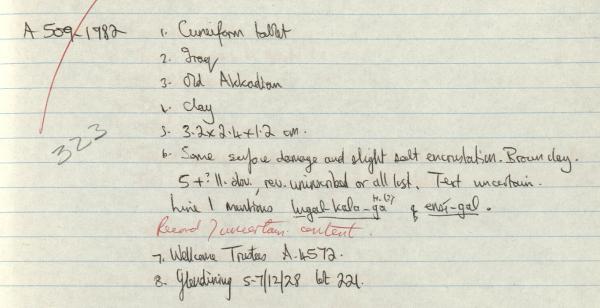 A 509-1982 1. Cuneiform tablet
2. Iraq
3. Old Akkadian
4. Clay
5. 3.2 x 2.4 x 1.2 cm.
323
6. Some surface damage and slight salt encrustation. Brown clay.
5 + ? ll. obv., rev. uninscribed or all lost. Text uncertain.
Line 1 mentions lugal-kala-ga & ensi-gal.
Record / uncertain content.
7. Wellcome Trustees A.4572.
8. Glendining 5-7/12/28 lot 221.